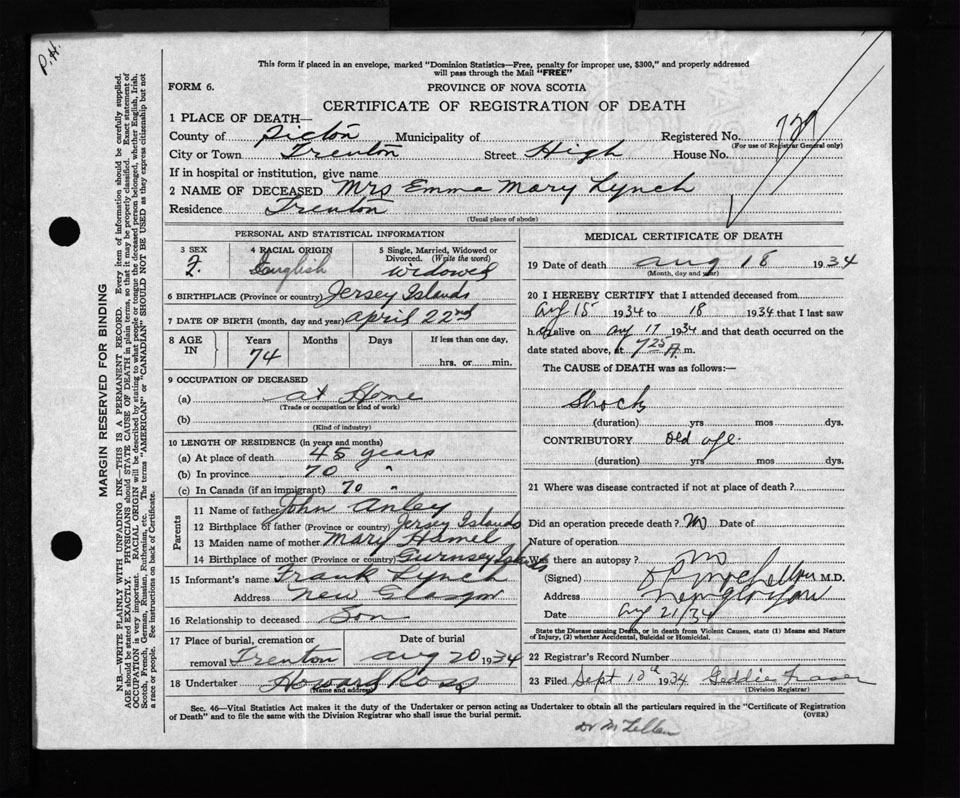 P.H.
This form if placed in an envelope, marked "Dominion Statistics—Free, penalty for improper use, $300," and properly addressed
will pass through the Mail "FREE"
FORM 6.
PROVINCE OF NOVA SCOTIA
CERTIFICATE OF REGISTRATION OF DEATH
1 PLACE OF DEATH—
County of Pictou Municipality of Registered No.
(For use of Registrar General only)
City or Town Trenton Street High House No.
If in hospital or institution, give name
2 NAME OF DECEASED Mrs Emma Mary Lynch
Residence Trenton
(Usual place of abode)
PERSONAL AND STATISTICAL INFORMATION
3 SEX
F.
4 RACIAL ORIGIN
English
5 Single, Married, Widowed or
Divorced. (Write the word)
Widowed
6 BIRTHPLACE (Province or country) Jersey Islands
7 DATE OF BIRTH (month, day and year) April 22nd
8 AGE IN
Years Months Days If less than one day,
74
hrs. or min.
9 OCCUPATION OF DECEASED
(a) at Home
(Trade or occupation or kind of work)
(b)
(Kind of industry)
10 LENGTH OF RESIDENCE (in years and months)
(a) At place of death 45 years
(b) In province 70 "
(c) In Canada (if an immigrant) 70 "
Parents
11 Name of father John Anley
12 Birthplace of father (Province or country) Jersey Islands
13 Maiden name of mother Mary Hamel
14 Birthplace of mother (Province or country) Gurnsey Islds
15 Informant's name Frank Lynch
Address New Glasgow
16 Relationship to deceased Son
17 Place of burial, cremation or
removal Trenton
Date of burial
Aug 20 1934
18 Undertaker Howard Ross
(Name and address)
MEDICAL CERTIFICATE OF DEATH
19 Date of death Aug 18 1934
(Month, day and year)
20 I HEREBY CERTIFY that I attended deceased from
Aug 15 1934 to 18 1934 that I last saw
h er alive on Aug 17 1934 and that death occurred on the
date stated above, at 7 25 A m.
The CAUSE of DEATH was as follows:—
Shock
(duration) yrs mos dys.
CONTRIBUTORY Old age.
(duration) yrs mos dys.
21 Where was disease contracted if not at place of death?
Did an operation precede death? No Date of
Nature of operation
Was there an autopsy? no
(Signed) M.D.
Address
Date Aug 21/34
State the Disease causing Death, or in death from Violent Causes, state (1) Means and Nature
of Injury, (2) whether Accidental, Suicidal or Homicidal.
22 Registrar's Record Number
23 Filed Sept 10th 1934 Geddie Fraser
(Division Registrar)
Sec. 46—Vital Statistics Act makes it the duty of the Undertaker or person acting as Undertaker to obtain all the particulars required in the "Certificate of Registration
of Death" and to file the same with the Division Registrar who shall issue the burial permit.
(OVER)
Dr McLellan
MARGIN RESERVED FOR BINDING
N.B.—WRITE PLAINLY WITH UNFADING INK—THIS IS A PERMANENT RECORD. Every item of information should be carefully supplied.
AGE should be stated EXACTLY. PHYSICIANS should STATE CAUSE OF DEATH in plain terms, so that it may be properly classified. Exact statement of
OCCUPATION is very important. RACIAL ORIGIN will be described by stating to what people or tongue the deceased person belonged, whether English, Irish,
Scotch, French, German, Russian, Ruthenian, etc. The terms "AMERICAN" or "CANADIAN" SHOULD NOT BE USED as they express citizenship but not
a race or people. See instructions on back of Certificate.